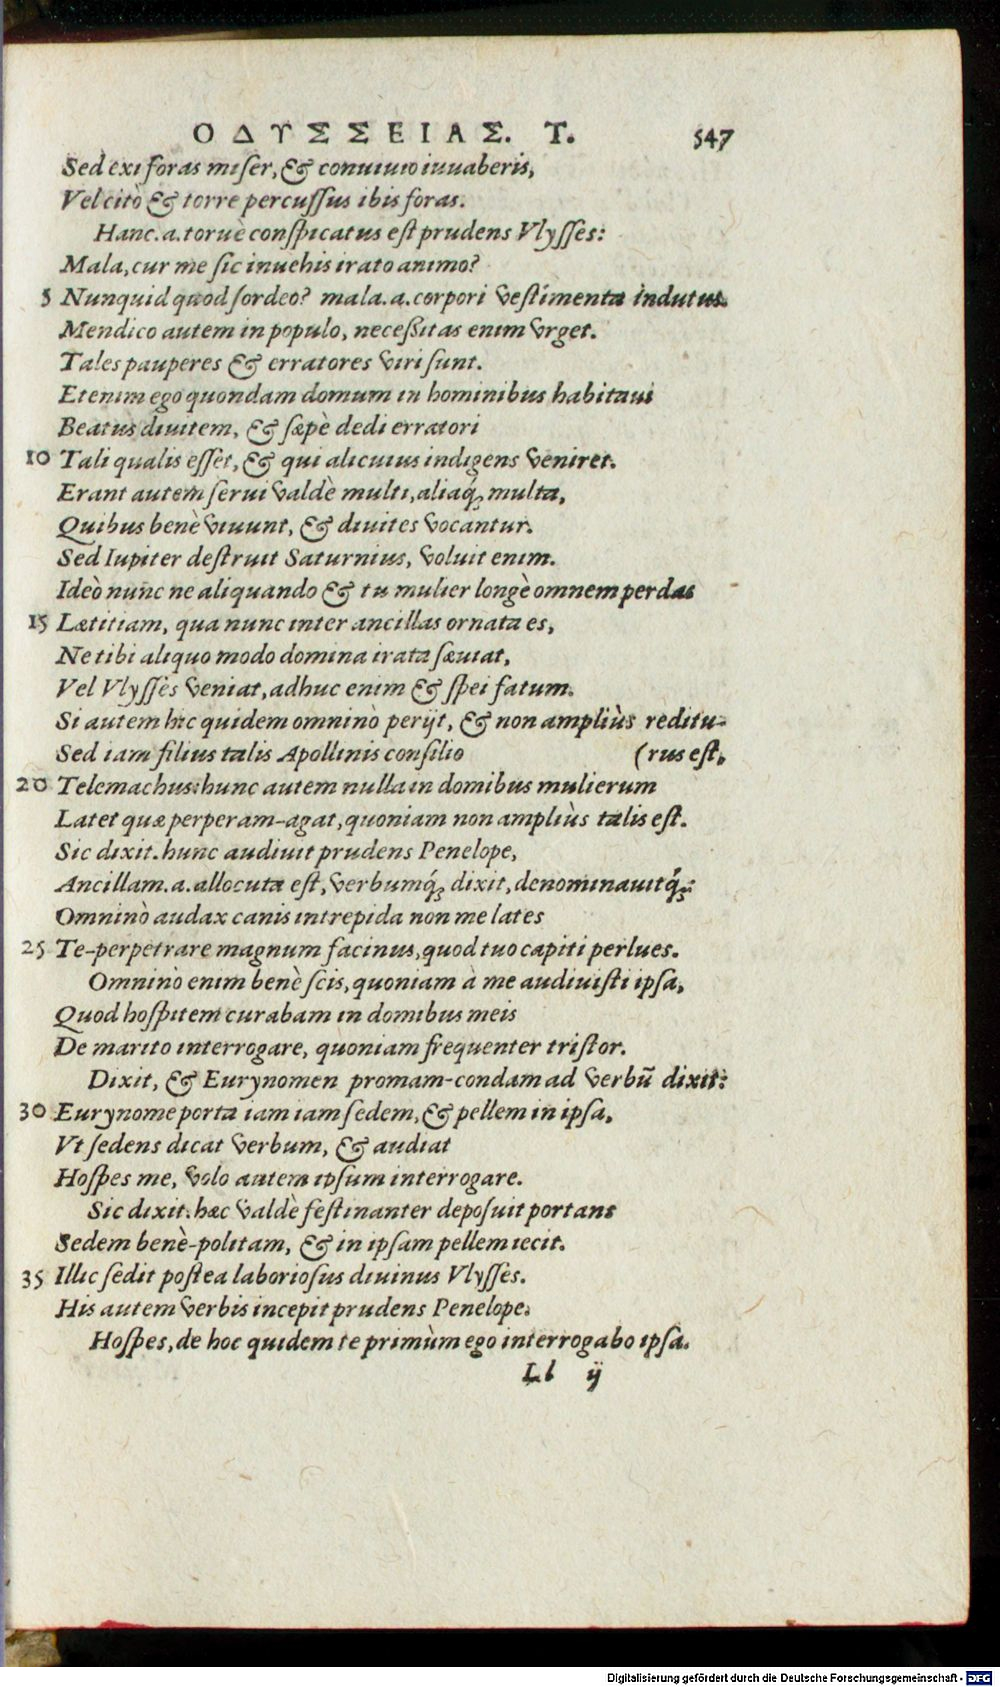 ΟΔΥΣΣΕΙΑΣ. Τ. 547
Sed exi foras miser, & conuiuio iuuaberis,
Vel citò & torre percussus ibis foras.
Hanc .a. toruè conspicatus est prudens Vlysses:
Mala, cur me sic inuehis irato animo?
5 Nunquid quod sordeo? mala .a. corpori vestimenta indutus.
Mendico autem in populo, necessitas enim vrget.
Tales pauperes & erratores viri sunt.
Etenim ego quondam domum in hominibus habitaui
Beatus diuitem, & sæpè dedi erratori
10 Tali qualis esset, & qui alicuius indigens veniret.
Erant autem serui valdè multi, aliaq́; multa,
Quibus benè viuunt, & diuites vocantur.
Sed Iupiter destruit Saturnius, voluit enim.
Ideò nunc ne aliquando & tu mulier longè omnem perdas
15 Lætitiam, qua nunc inter ancillas ornata es,
Ne tibi aliquo modo domina irata sæuiat,
Vel Vlysses veniat, adhuc enim & spei fatum.
Si autem hic quidem omninò perijt, & non ampliùs reditu-
Sed iam filius talis Apollinis consilio (rus est,
20 Telemachus: hunc autem nulla in domibus mulierum
Latet quæ perperam-agat, quoniam non ampliùs talis est.
Sic dixit. hunc audiuit prudens Penelope,
Ancillam .a. allocuta est, verbumq́; dixit, denominauitq́;:
Omninò audax canis intrepida non me lates
25 Te-perpetrare magnum facinus, quod tuo capiti perlues.
Omninò enim benè scis, quoniam à me audiuisti ipsa,
Quod hospitem curabam in domibus meis
De marito interrogare, quoniam frequenter tristor.
Dixit, & Eurynomen promam-condam ad verbũ dixit:
30 Eurynome porta iam iam sedem, & pellem in ipsa,
Vt sedens dicat verbum, & audiat
Hospes me, volo autem ipsum interrogare.
Sic dixit. hæc valdè festinanter deposuit portans
Sedem benè-politam, & in ipsam pellem iecit.
35 Illic sedit postea laboriosus diuinus Vlysses.
His autem verbis incepit prudens Penelope.
Hospes, de hoc quidem te primùm ego interrogabo ipsa.
Ll ij
Digitalisierung gefördert durch die Deutsche Forschungsgemeinschaft - DFG